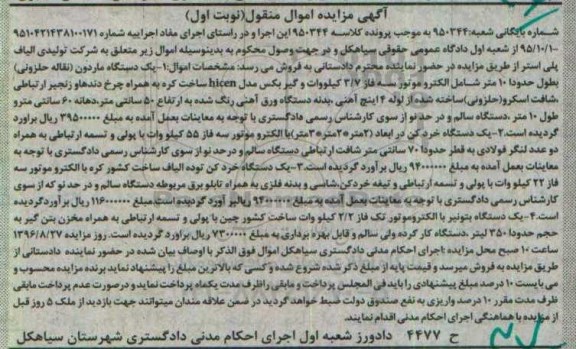 آگهی مزایده اموال منقول(نوبت اول)
شماره بایگانی شعبه:۹۵۰۳۴۴ به موجب پرونده کلاسه ۹۵۰۳۴۴ این اجرا و در راستای اجرای مفاد اجراییه شماره ۹۵۱۰۴۲۱۴۳۸۱۰۰۱۷۱
-۹۵/۱۰/۱ از شعبه اول دادگاه عمومی حقوقی سیاهکل و در جهت وصول محکوم به بدینوسیله اموال زیر متعلق به شرکت تولیدی الیاف
پلی استر از طریق مزایده در حضور نماینده محترم دادستانی به فروش می رسد: مشخصات اموال:۱-یک دستگاه ماردون (نقاله حلزونی)
بطول حدودا ۱۰ متر شامل الکترو موتور سه فاز ۳/۷ کیلووات و گیر بکس مدل hicen ساخت کره به همراه چرخ دندهاو زنجیر ارتباطی
،شافت اسکرو(حلزونی)ساخته شده از لوله ۴ اینچ آهنی ،بدنه دستگاه ورق آهنی رنگ شده به ارتفاع ۵۰ سانتی متر،دهانه ۶۰ سانتی مترو
طول ۱۰ متر ،دستگاه سالم و در حد نو از سوی کارشناس رسمی دادگستری با توجه به معاینات بعمل آمده به مبلغ ۳۹۵۰۰۰۰۰ ریال براورد
گردیده است.۲-یک دستگاه خرد کن در ابعاد (۲متر*۲متر*۳متر)با الکترو موتور سه فاز ۵۵ کیلو وات با پولی و تسمه ارتباطی به همراه
دو عدد لنگر فولادی به قطر حدودا ۷۰ سانتی متر شافت ارتباطی دستگاه سالم و درحد نو از سوی کارشناس رسمی دادگستری با توجه به
معاینات بعمل آمده به مبلغ ۹۴۰۰۰۰۰۰ ریال برآورد گردیده است.۳-یک دستگاه خرد کن توده الیاف ساخت کشور کره با الکترو موتور سه
فاز ۲۲ کیلو وات با پولی و تسمه ارتباطی و تیغه خردکن،شاسی و بدنه فلزی به همراه تابلو برق مربوطه دستگاه سالم و در حد نو که از سوی
کارشناس رسمی دادگستری با توجه به معاینات بعمل آمده به مبلغ ۹۴۰۰۰۰۰۰ ریالبر آورد گردیده است.مبلغ ۱۱۶۰۰۰۰۰۰ ریال برآوردگردیده
است.۴-یک دستگاه بتونیر با الکتروموتور تک فاز ۲/۲ کیلو وات ساخت کشور چین با پولی و تسمه ارتباطی به همراه مخزن بتن گیر به
حجم حدودا ۳۵۰ لیتر ،دستگاه کار کرده ولی سالم و قابل بهره برداری به مبلغ ۷۳۰۰۰۰۰ ریال براورد گردیده است. روز مزایده ۱۳۹۶/۸/۲۷
ساعت ۱۰ صبح محل مزایده :اجرای احکام مدنی دادگستری سیاهکل اموال فوق الذکر با اوصاف بیان شده در حضور نماینده دادستانی از
طریق مزایده به فروش میرسد و قیمت پایه از مبلغ ذکر شده شروع شده و کسی که بالاترین مبلغ را پیشنهاد نماید برنده مزایده محسوب و
می بایست ۱۰ درصد مبلغ پیشنهادی را باید فی المجلس پرداخت و مابقی راظرف مدت یکماه پرداخت نماید و درصورت عدم پرداخت مابقی
ظرف مدت مقرر ۱۰ درصد واریزی به نفع صندوق دولت ضبط خواهد گردید در ضمن علاقه مندان میتوانند جهت بازدید از ملک ۵ روز قبل
از مزایده با هماهنگی اجرای احکام مدنی اقدام نمایند.
ح ۴۴۷۷ دادورز شعبه اول اجرای احکام مدنی دادگستری شهرستان سیاهکل